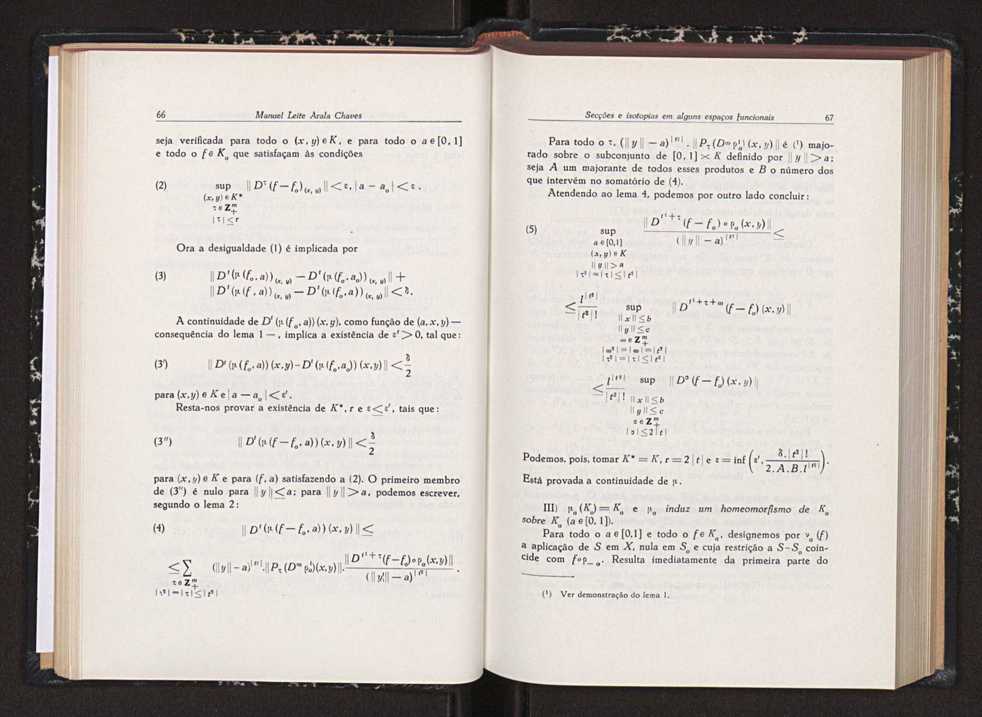 66 Manuel Leite Arala Chaves
seja verificada para todo o (x, y) ∈ K, e para todo o a ∈ [0, 1]
e todo o f ∈ K_o que satisfaçam às condições
(2) sup ‖ D^τ (f − f_o)_(x, y) ‖ < ε, | a − a_o | < ε .
(x, y) ∈ K*
τ ∈ Z^m_+
| τ | ≤ r
Ora a desigualdade (1) é implicada por
(3) ‖ D^t (μ (f_o, a))_(x, y) − D^t (μ (f_o, a_o))_(x, y) ‖ +
‖ D^t (μ (f , a))_(x, y) − D^t (μ (f_o, a))_(x, y) ‖ < δ.
A continuidade de D^t (μ (f_o, a)) (x, y), como função de (a, x, y) —
consequência do lema 1 — , implica a existência de ε' > 0, tal que:
(3') ‖ D^t (μ (f_o, a)) (x, y) − D^t (μ (f_o, a_o)) (x, y) ‖ < δ/2
para (x, y) ∈ K e | a − a_o | < ε'.
Resta-nos provar a existência de K*, r e ε ≤ ε', tais que:
(3'') ‖ D^t (μ (f − f_o, a)) (x, y) ‖ < δ/2
para (x, y) ∈ K e para (f, a) satisfazendo a (2). O primeiro membro
de (3'') é nulo para ‖ y ‖ ≤ a; para ‖ y ‖ > a, podemos escrever,
segundo o lema 2:
(4) ‖ D^t (μ (f − f_o, a)) (x, y) ‖ ≤
≤ ∑ (‖ y ‖ − a)^|τ| . ‖ P_τ (D^∞ ρ^t_a) (x, y) ‖ . ‖ D^{t¹ + τ} (f − f_o) ∘ ρ_a (x, y) ‖ / (‖ y ‖ − a)^|t²| .
τ ∈ Z^m_+
| τ² | = | τ | ≤ | t² |
Secções e isotopias em alguns espaços funcionais 67
Para todo o τ, (‖ y ‖ − a)^|τ| . ‖ P_τ (D^∞ ρ^t_a) (x, y) ‖ é (¹) majo-
rado sobre o subconjunto de [0, 1] × K definido por ‖ y ‖ > a;
seja A um majorante de todos esses produtos e B o número dos
que intervêm no somatório de (4).
Atendendo ao lema 4, podemos por outro lado concluir:
(5) sup ‖ D^{t¹ + τ} (f − f_o) ∘ ρ_a (x, y) ‖ / (‖ y ‖ − a)^|t²| ≤
a ∈ [0,1]
(x, y) ∈ K
‖ y ‖ > a
| τ² | = | τ | ≤ | t² |
≤ l^|t²| / | t² | ! sup ‖ D^{t¹ + τ + ω} (f − f_o) (x, y) ‖
‖ x ‖ ≤ b
‖ y ‖ ≤ c
ω ∈ Z^m_+
| ω² | = | ω | = | t² |
| τ² | = | τ | ≤ | t² |
≤ l^|t²| / | t² | ! sup ‖ D^σ (f − f_o) (x, y) ‖
‖ x ‖ ≤ b
‖ y ‖ ≤ c
σ ∈ Z^m_+
| σ | ≤ 2 | t |
Podemos, pois, tomar K* = K, r = 2 | t | e ε = inf (ε', δ . | t² | ! / 2 . A . B . l^|t²|).
Está provada a continuidade de μ.
III) μ_a (K_o) = K_a e μ_a induz um homeomorfismo de K_o
sobre K_a (a ∈ [0, 1]).
Para todo o a ∈ [0,1] e todo o f ∈ K_a, designemos por ν_a (f)
a aplicação de S em X, nula em S_o e cuja restrição a S − S_o coin-
cide com f ∘ ρ_{−a}. Resulta imediatamente da primeira parte do
(¹) Ver demonstração do lema 1.